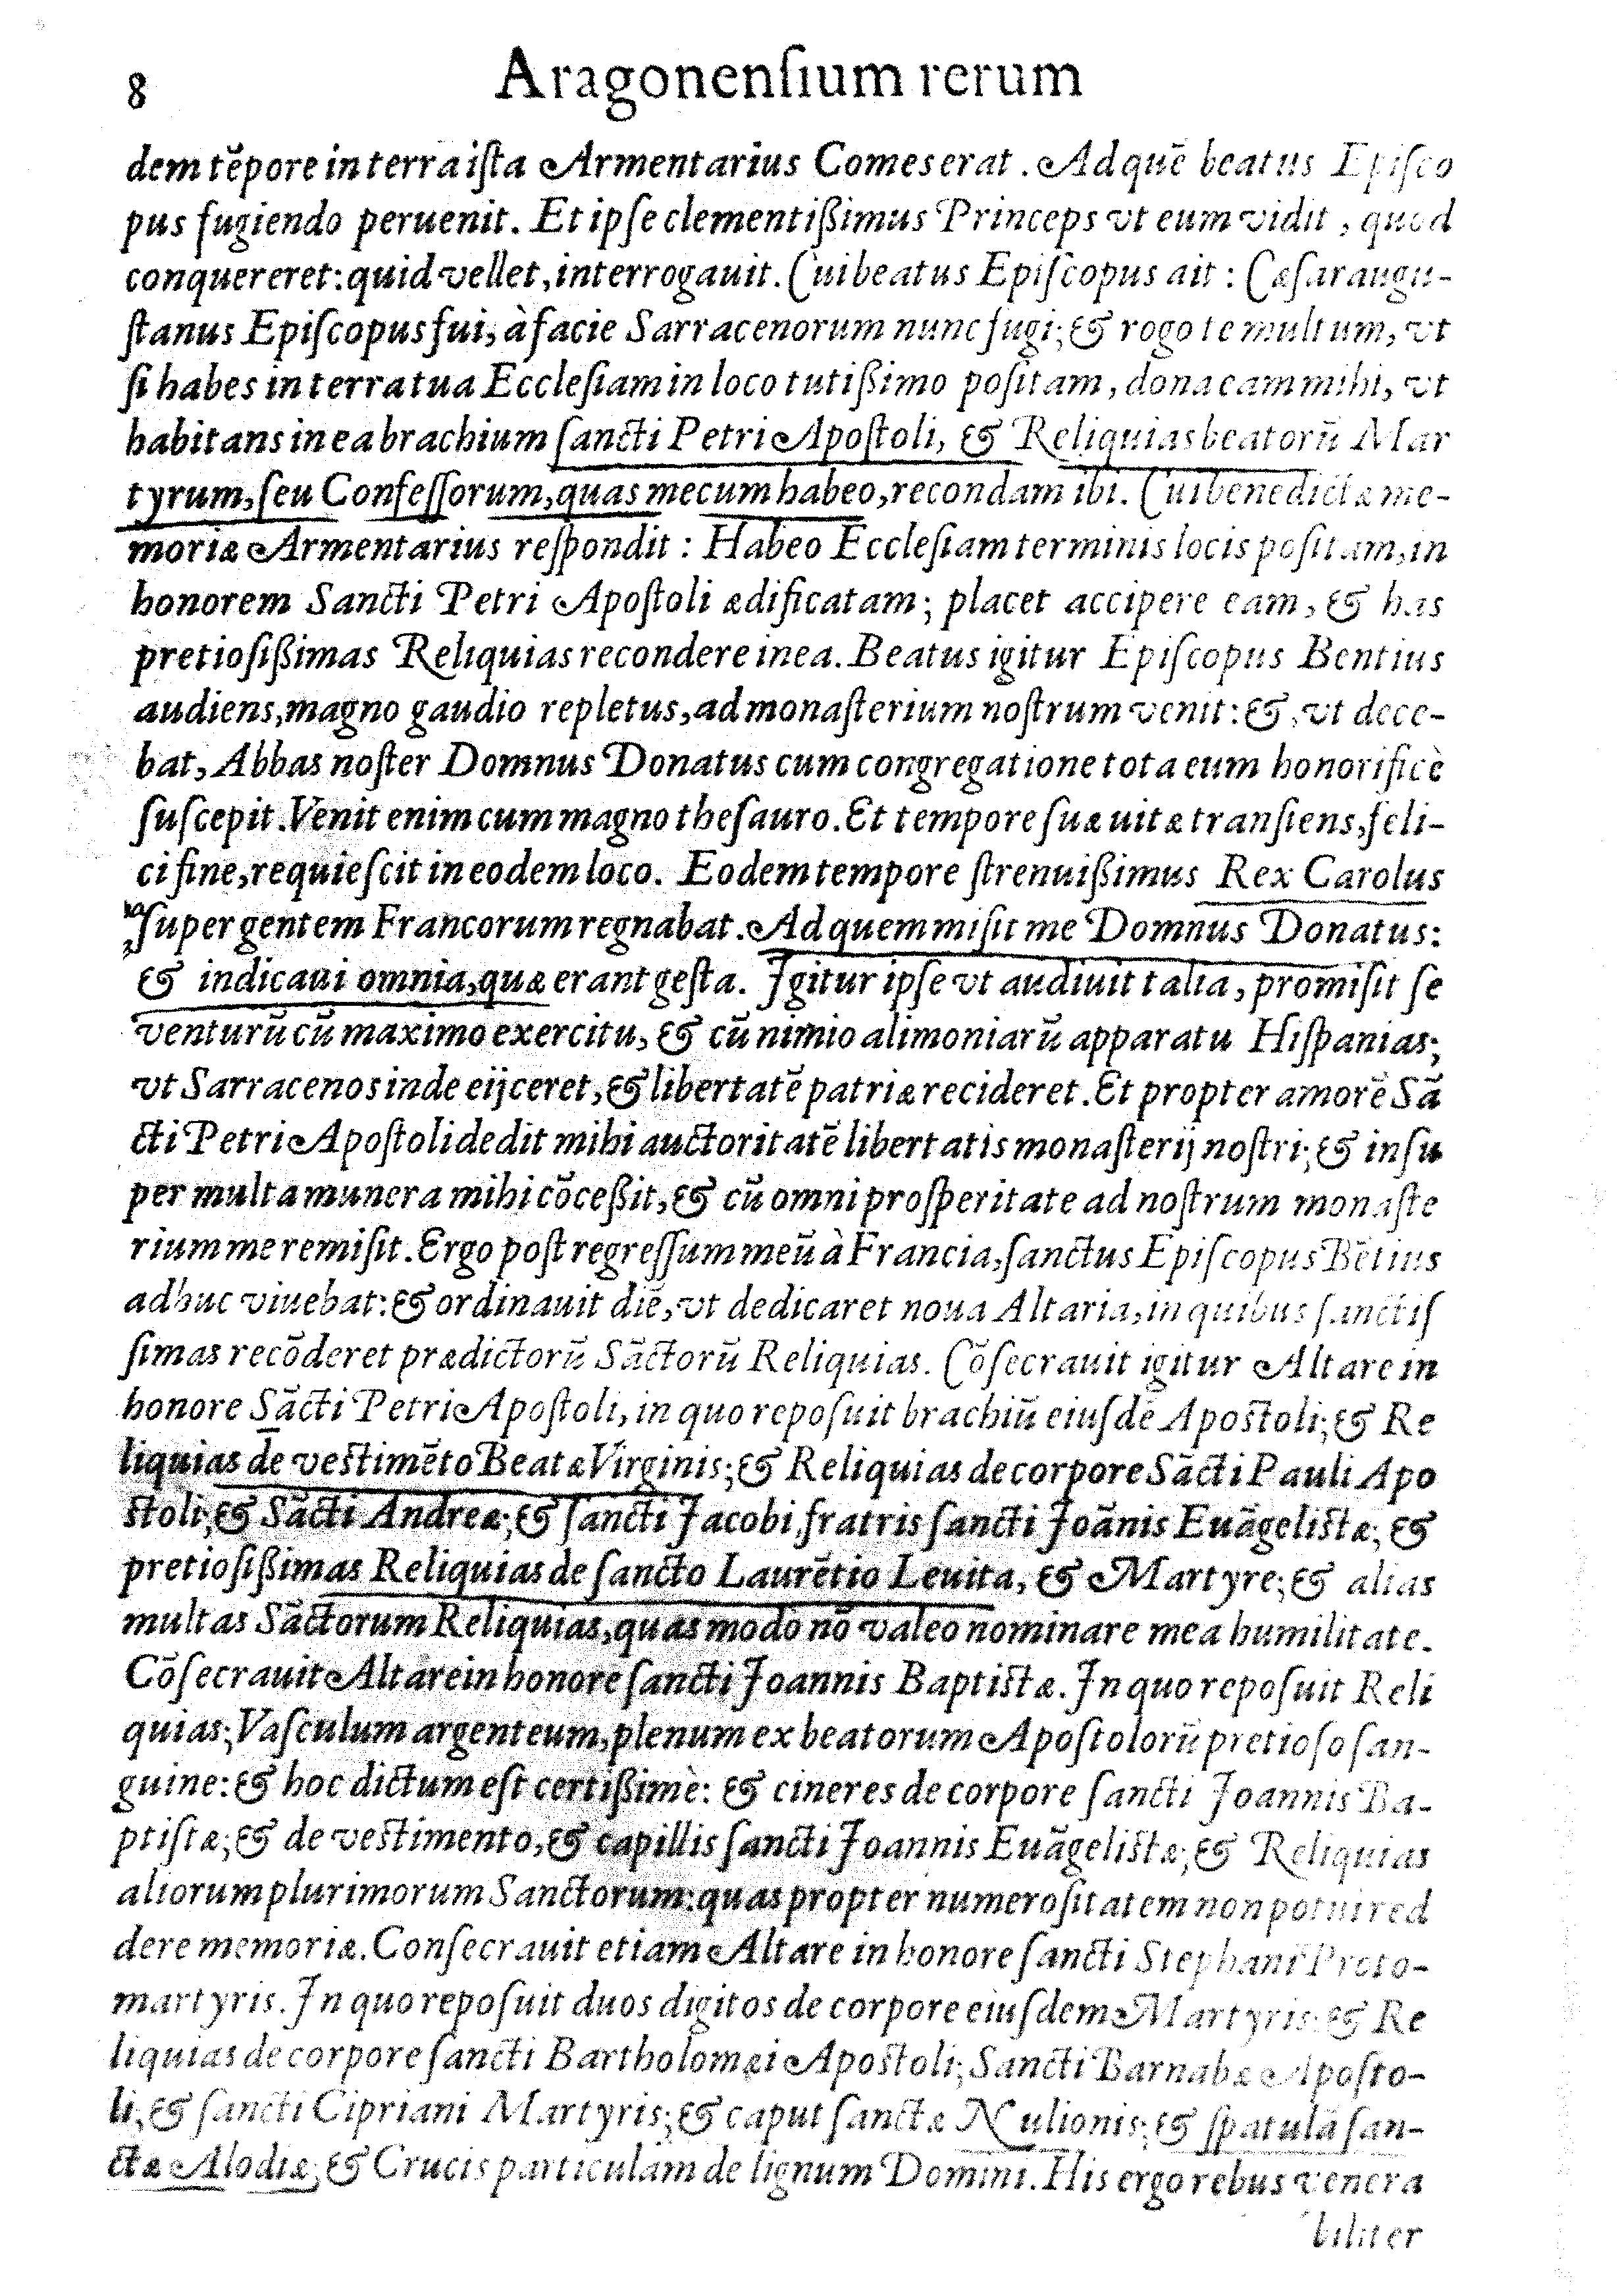 8 Aragonenſium rerum
dem tẽpore in terra iſta Armentarius Comes erat. Ad quẽ beatus Epiſco
pus fugiendo peruenit. Et ipſe clementißimus Princeps vt eum vidit, quod
conquereret: quid vellet, interrogauit. Cui beatus Epiſcopus ait: Cæſaraugu-
ſtanus Epiſcopus fui, à facie Sarracenorum nunc fugi; & rogo te multum, vt
ſi habes in terra tua Eccleſiam in loco tutißimo poſitam, dona eam mihi, vt
habitans in ea brachium ſancti Petri Apoſtoli, & Reliquias beatorũ Mar
tyrum, ſeu Confeſſorum, quas mecum habeo, recondam ibi. Cui benedictæ me-
moriæ Armentarius reſpondit: Habeo Eccleſiam terminis locis poſitam, in
honorem Sancti Petri Apoſtoli ædificatam; placet accipere eam, & has
pretioſißimas Reliquias recondere in ea. Beatus igitur Epiſcopus Bentius
audiens, magno gaudio repletus, ad monaſterium noſtrum venit: &, vt dece-
bat, Abbas noſter Domnus Donatus cum congregatione tota eum honorificè
ſuſcepit. Venit enim cum magno theſauro. Et tempore ſuæ uitæ tranſiens, feli-
ci fine, requieſcit in eodem loco. Eodem tempore ſtrenuißimus Rex Carolus
ſuper gentem Francorum regnabat. Ad quem miſit me Domnus Donatus:
& indicaui omnia, quæ erant geſta. Igitur ipſe vt audiuit talia, promiſit ſe
venturũ cũ maximo exercitu, & cũ nimio alimoniarũ apparatu Hiſpanias;
vt Sarracenos inde eijceret, & libertatẽ patriæ recideret. Et propter amorẽ Sã
cti Petri Apoſtoli dedit mihi auctoritatẽ libertatis monaſterij noſtri; & inſu
per multa munera mihi cõceßit, & cũ omni proſperitate ad noſtrum monaſte
rium me remiſit. Ergo poſt regreſſum meũ à Francia, ſanctus Epiſcopus Bẽtius
adhuc viuebat: & ordinauit diẽ, vt dedicaret noua Altaria, in quibus ſanctiſ
ſimas recõderet prædictorũ Sãctorũ Reliquias. Cõſecrauit igitur Altare in
honore Sãcti Petri Apoſtoli, in quo repoſuit brachiũ eiuſdẽ Apoſtoli; & Re
liquias de veſtimẽto Beatæ Virginis; & Reliquias de corpore Sãcti Pauli Apo
ſtoli; & Sãcti Andreæ; & ſancti Jacobi, fratris ſancti Joãnis Euãgeliſtæ; &
pretioſißimas Reliquias de ſancto Laurẽtio Leuita, & Martyre; & alias
multas Sãctorum Reliquias, quas modo nõ valeo nominare mea humilitate.
Cõſecrauit Altare in honore ſancti Joannis Baptiſtæ. In quo repoſuit Reli
quias; Vaſculum argenteum, plenum ex beatorum Apoſtolorũ pretioſo ſan-
guine: & hoc dictum eſt certißimè: & cineres de corpore ſancti Joannis Ba-
ptiſtæ; & de veſtimento, & capillis ſancti Joannis Euãgeliſtæ; & Reliquias
aliorum plurimorum Sanctorum: quas propter numeroſitatem non potui red
dere memoriæ. Conſecrauit etiam Altare in honore ſancti Stephani Proto-
martyris. In quo repoſuit duos digitos de corpore eiuſdem Martyris; & Re
liquias de corpore ſancti Bartholomæi Apoſtoli; Sancti Barnabæ Apoſto-
li; & ſancti Cipriani Martyris; & caput ſanctæ Nulionis; & ſpatulã ſan-
ctæ Alodiæ; & Crucis particulam de lignum Domini. His ergo rebus venera
biliter